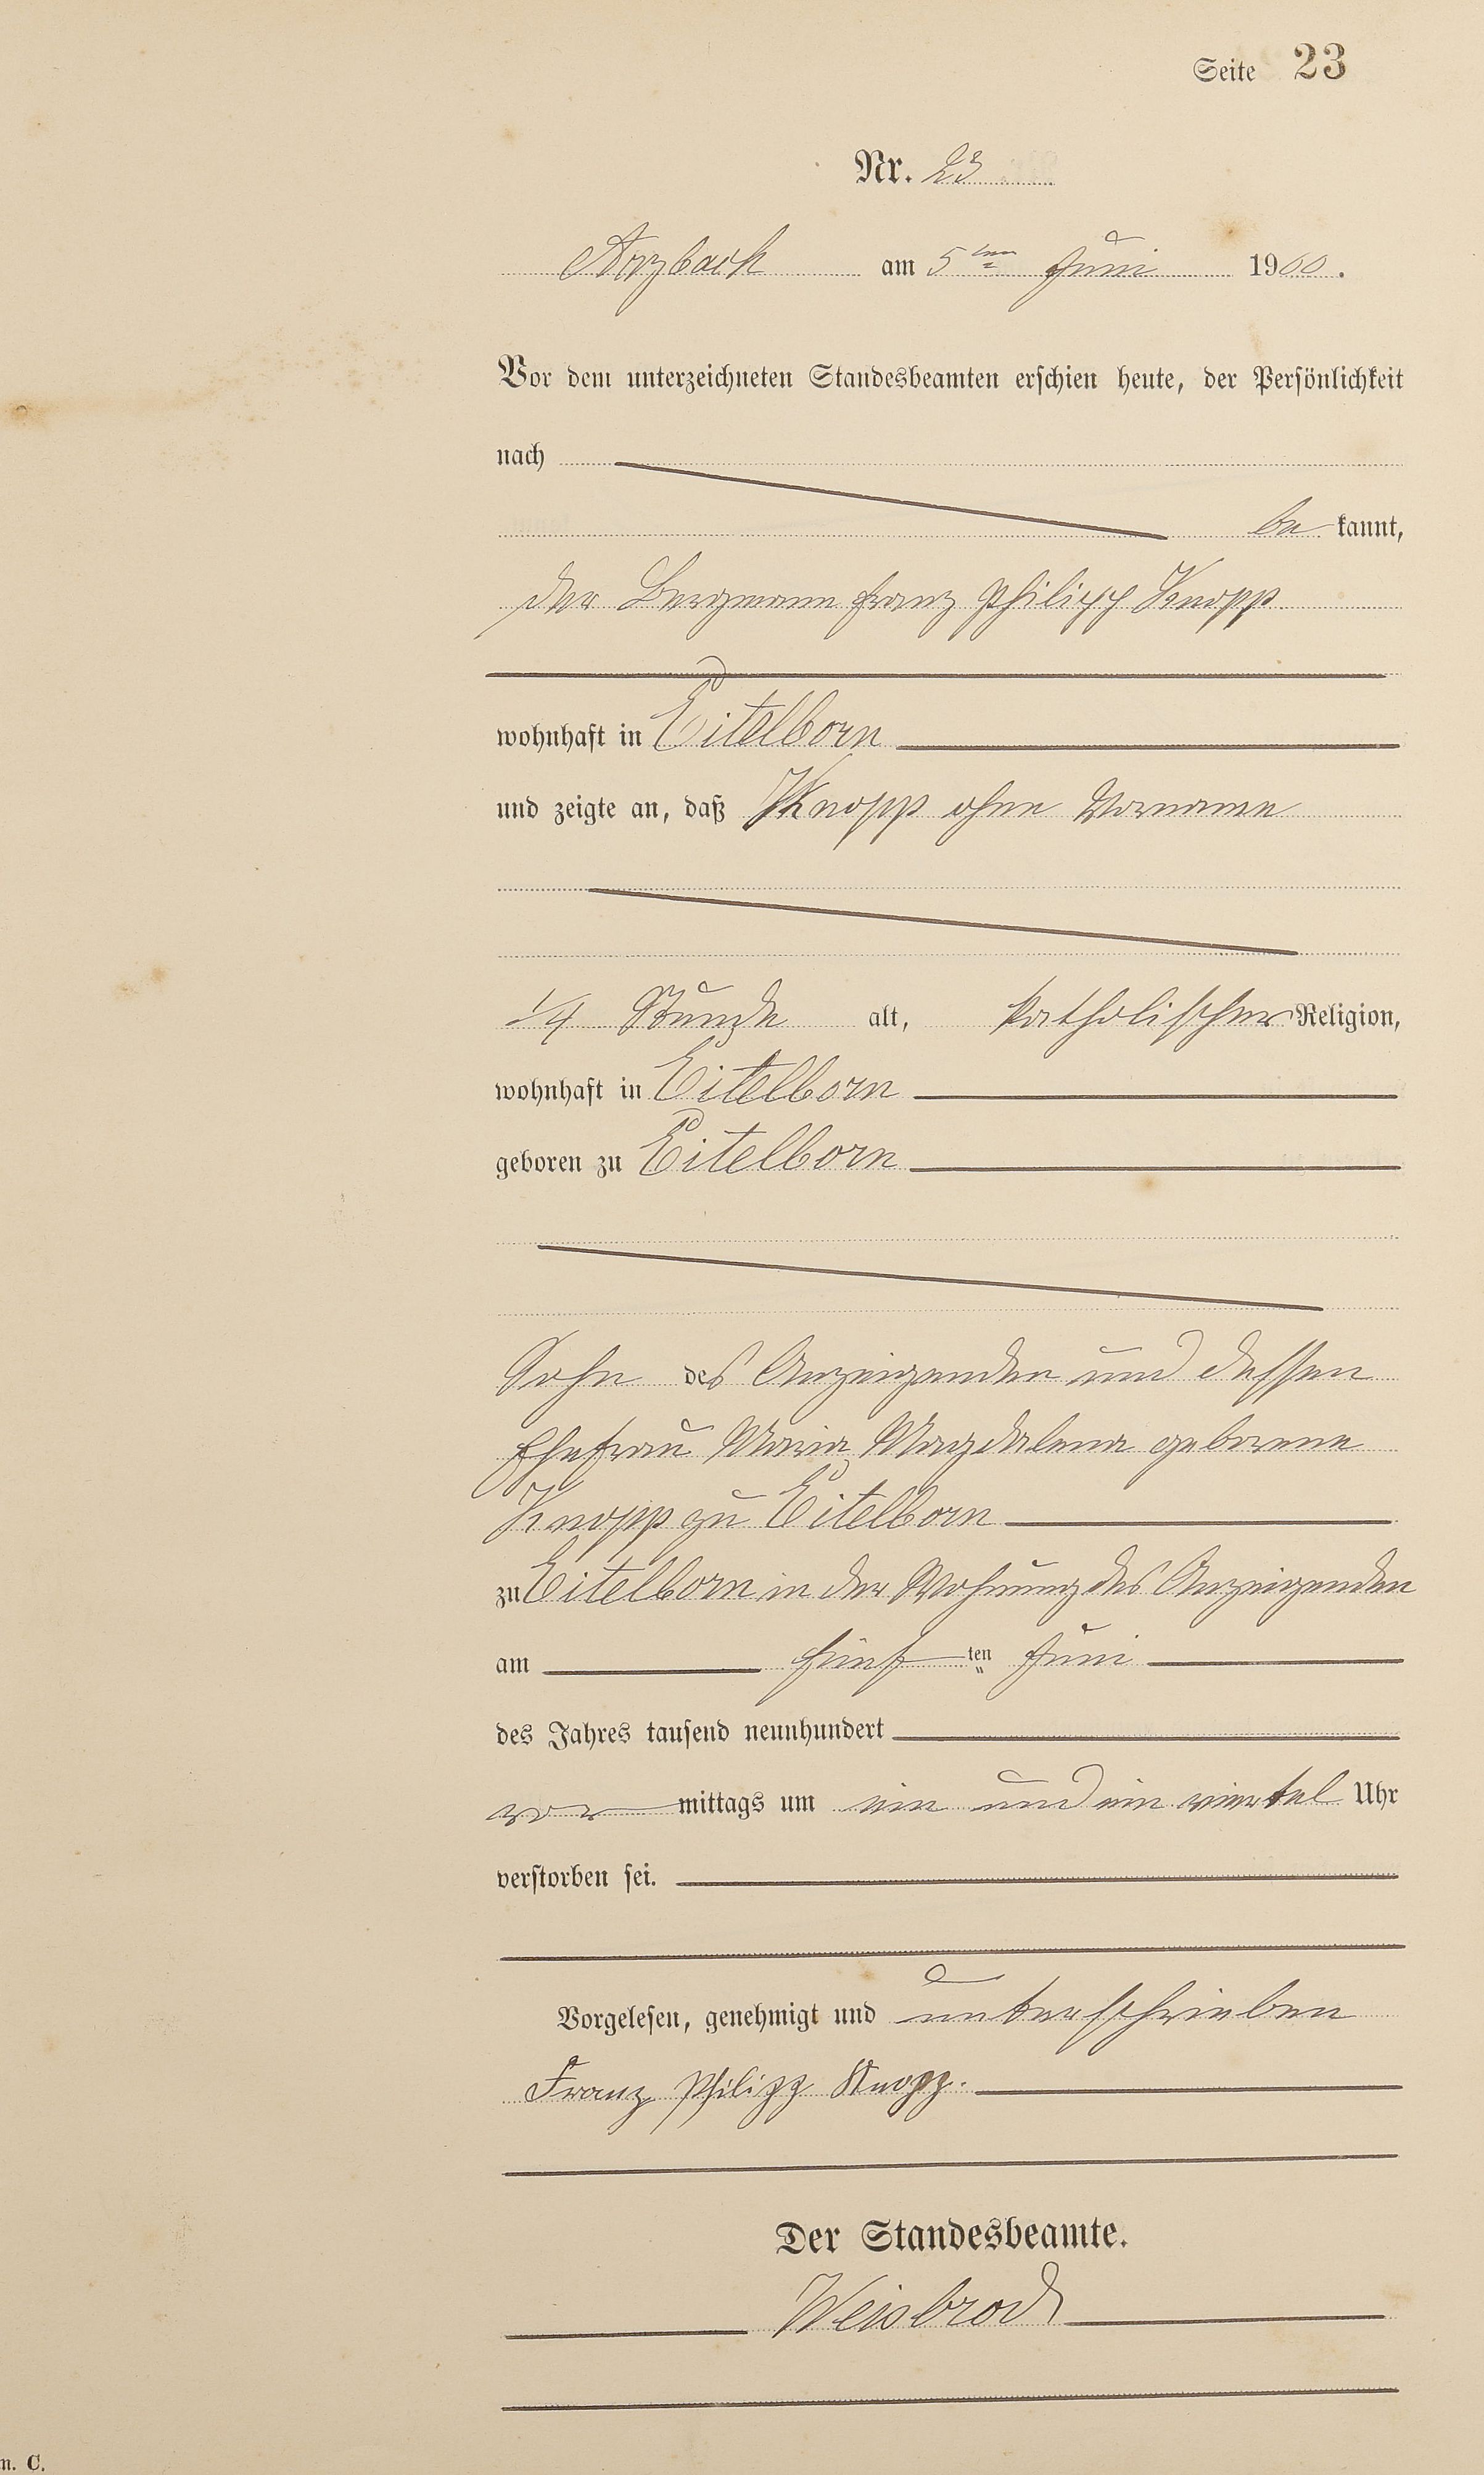 Seite 23
Nr. 23
Arzbach am 5ten Juni 1900.
Vor dem unterzeichneten Standesbeamten erschien heute, der Persönlichkeit
nach
be kannt,
der Bergmann Franz Philipp Knopp
wohnhaft in Eitelborn
und zeigte an, daß Knopp ohne Vorname
1/4 Stunde alt, katholischer Religion,
wohnhaft in Eitelborn
geboren zu Eitelborn
Sohn des Anzeigenden und dessen
Ehefrau Maria Magdalena geborene
Knopp zu Eitelborn
zu Eitelborn in der Wohnung des Anzeigenden
am fünf ten Juni
des Jahres tausend neunhundert
vor mittags um ein und ein viertel Uhr
verstorben sei.
Vorgelesen, genehmigt und unterschrieben
Franz Philipp Knopp.
Der Standesbeamte.
Weisbrod
m. C.